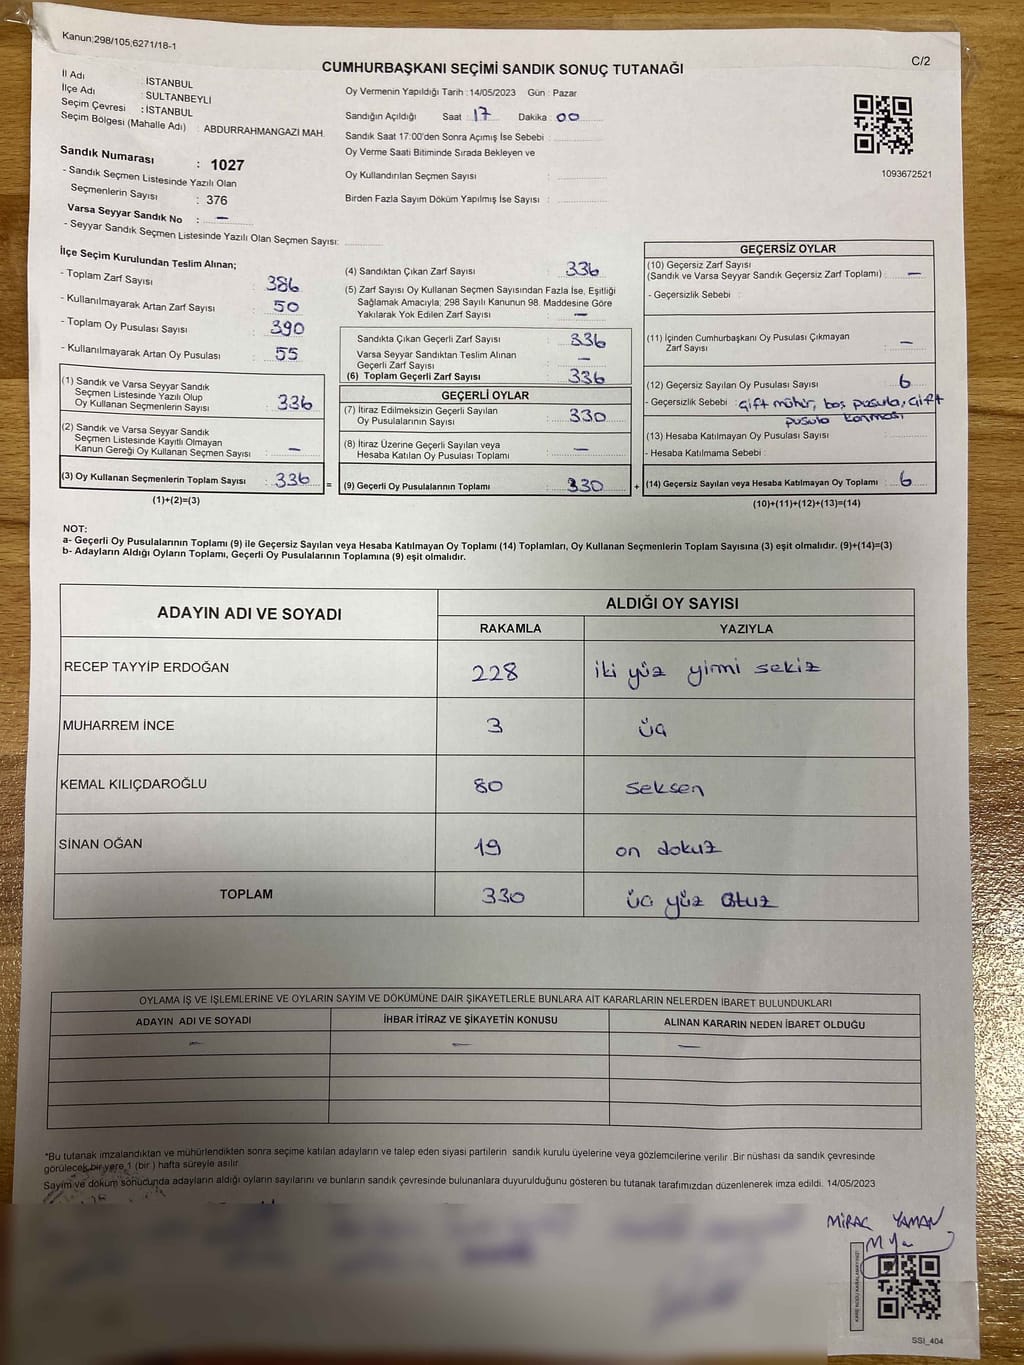 Kanun:298/105;6271/18-1
C/2
CUMHURBAŞKANI SEÇİMİ SANDIK SONUÇ TUTANAĞI
İl Adı : İSTANBUL
İlçe Adı : SULTANBEYLİ
Seçim Çevresi : İSTANBUL
Seçim Bölgesi (Mahalle Adı) : ABDURRAHMANGAZI MAH.
Sandık Numarası : 1027
- Sandık Seçmen Listesinde Yazılı Olan
Seçmenlerin Sayısı : 376
Varsa Seyyar Sandık No : —
- Seyyar Sandık Seçmen Listesinde Yazılı Olan Seçmen Sayısı:
Oy Vermenin Yapıldığı Tarih :14/05/2023 Gün : Pazar
Sandığın Açıldığı Saat : 17 Dakika : 00
Sandık Saat 17:00'den Sonra Açımış İse Sebebi :
Oy Verme Saati Bitiminde Sırada Bekleyen ve
Oy Kullandırılan Seçmen Sayısı :
Birden Fazla Sayım Döküm Yapılmış İse Sayısı :
1093672521
İlçe Seçim Kurulundan Teslim Alınan;
- Toplam Zarf Sayısı : 386
- Kullanılmayarak Artan Zarf Sayısı : 50
- Toplam Oy Pusulası Sayısı : 390
- Kullanılmayarak Artan Oy Pusulası : 55
(1) Sandık ve Varsa Seyyar Sandık
Seçmen Listesinde Yazılı Olup
Oy Kullanan Seçmenlerin Sayısı : 336
(2) Sandık ve Varsa Seyyar Sandık
Seçmen Listesinde Kayıtlı Olmayan
Kanun Gereği Oy Kullanan Seçmen Sayısı : —
(3) Oy Kullanan Seçmenlerin Toplam Sayısı : 336 =
(1)+(2)=(3)
(4) Sandıktan Çıkan Zarf Sayısı : 336
(5) Zarf Sayısı Oy Kullanan Seçmen Sayısından Fazla İse, Eşitliği
Sağlamak Amacıyla; 298 Sayılı Kanunun 98. Maddesine Göre
Yakılarak Yok Edilen Zarf Sayısı : —
Sandıkta Çıkan Geçerli Zarf Sayısı : 336
Varsa Seyyar Sandıktan Teslim Alınan
Geçerli Zarf Sayısı : —
(6) Toplam Geçerli Zarf Sayısı : 336
GEÇERLİ OYLAR
(7) İtiraz Edilmeksizin Geçerli Sayılan
Oy Pusulalarının Sayısı : 330
(8) İtiraz Üzerine Geçerli Sayılan veya
Hesaba Katılan Oy Pusulası Toplamı : —
(9) Geçerli Oy Pusulalarının Toplamı : 330 +
GEÇERSİZ OYLAR
(10) Geçersiz Zarf Sayısı
(Sandık ve Varsa Seyyar Sandık Geçersiz Zarf Toplamı) : —
- Geçersizlik Sebebi :
(11) İçinden Cumhurbaşkanı Oy Pusulası Çıkmayan
Zarf Sayısı : —
(12) Geçersiz Sayılan Oy Pusulası Sayısı : 6
- Geçersizlik Sebebi : çift mühür, boş pusula, çift
pusula konması
(13) Hesaba Katılmayan Oy Pusulası Sayısı :
- Hesaba Katılmama Sebebi :
(14) Geçersiz Sayılan veya Hesaba Katılmayan Oy Toplamı : 6
(10)+(11)+(12)+(13)=(14)
NOT:
a- Geçerli Oy Pusulalarının Toplamı (9) ile Geçersiz Sayılan veya Hesaba Katılmayan Oy Toplamı (14) Toplamları, Oy Kullanan Seçmenlerin Toplam Sayısına (3) eşit olmalıdır. (9)+(14)=(3)
b- Adayların Aldığı Oyların Toplamı, Geçerli Oy Pusulalarının Toplamına (9) eşit olmalıdır.
ADAYIN ADI VE SOYADI ALDIĞI OY SAYISI
RAKAMLA YAZIYLA
RECEP TAYYİP ERDOĞAN 228 iki yüz yirmi sekiz
MUHARREM İNCE 3 üç
KEMAL KILIÇDAROĞLU 80 seksen
SİNAN OĞAN 19 on dokuz
TOPLAM 330 üç yüz otuz
OYLAMA İŞ VE İŞLEMLERİNE VE OYLARIN SAYIM VE DÖKÜMÜNE DAİR ŞİKAYETLERLE BUNLARA AİT KARARLARIN NELERDEN İBARET BULUNDUKLARI
ADAYIN ADI VE SOYADI İHBAR İTİRAZ VE ŞİKAYETİN KONUSU ALINAN KARARIN NEDEN İBARET OLDUĞU
— — —
*Bu tutanak imzalandıktan ve mühürlendikten sonra seçime katılan adayların ve talep eden siyasi partilerin sandık kurulu üyelerine veya gözlemcilerine verilir .Bir nüshası da sandık çevresinde
görülecek bir yere 1 (bir ) hafta süreyle asılır.
Sayım ve döküm sonucunda adayların aldığı oyların sayılarını ve bunların sandık çevresinde bulunanlara duyurulduğunu gösteren bu tutanak tarafımızdan düzenlenerek imza edildi. 14/05/2023
MİRAÇ YAMAN
SSI_404